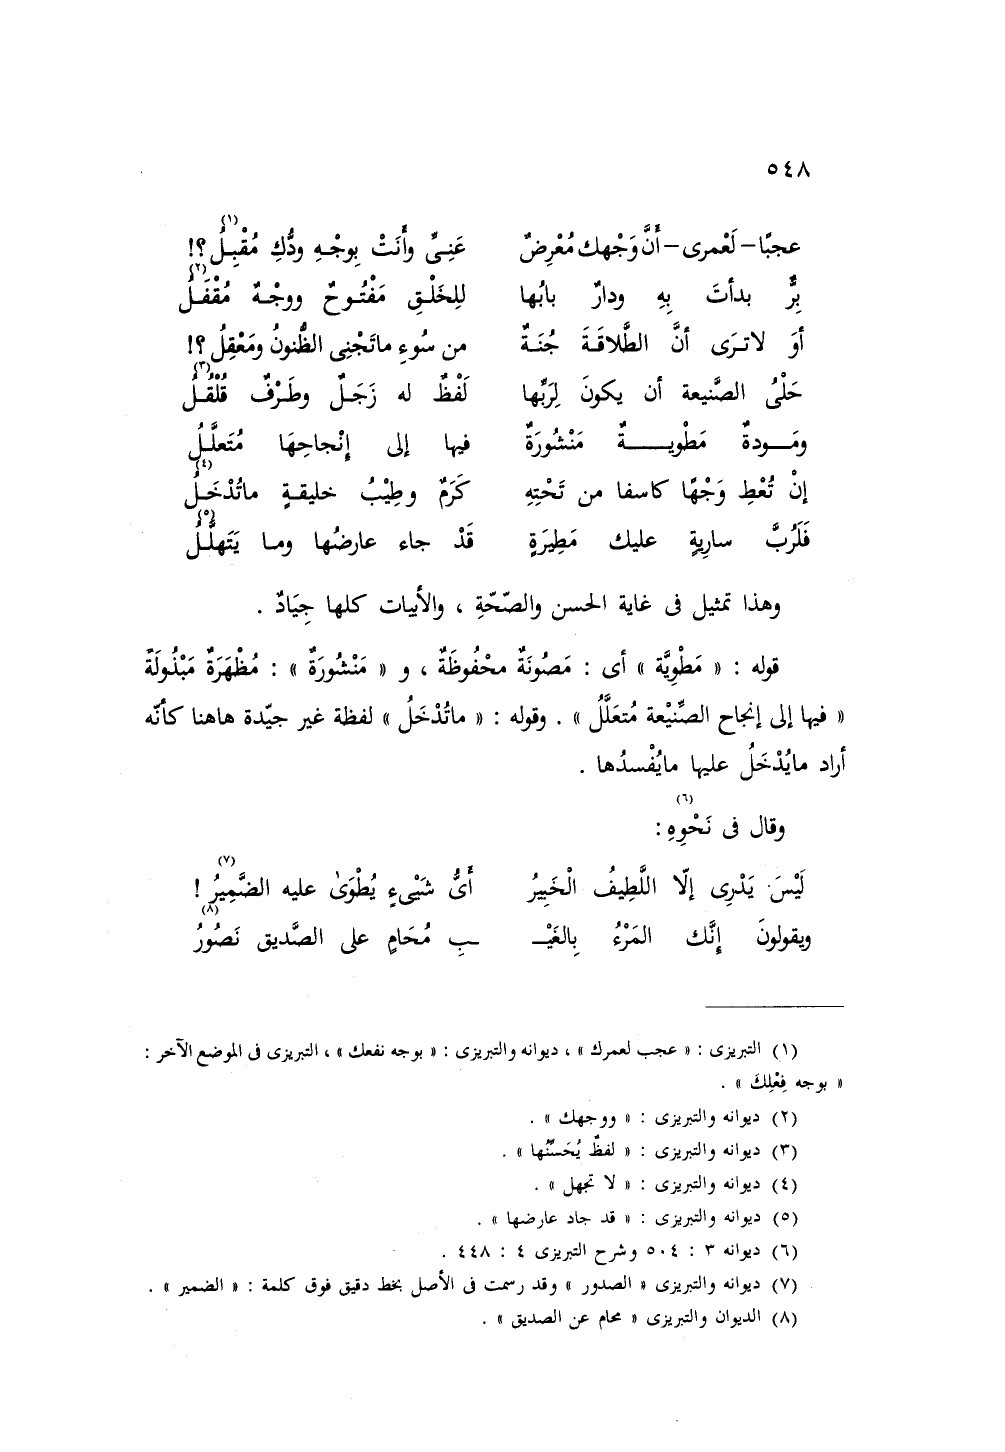 ٥٤٨
عجبًا – لَعْمرى – أَنَّ وَجْهك مُعْرِضٌ عَنِىِّ وأَنَتْ بِوجْـهِ ودُّكِ مُقْبِـلُ ؟! (١)
بِرٌّ بدأتَ بِهِ ودارٌ بابُها للِخَلْـقِ مَفْتُـوحٌ ووجْـهٌ مُقْفَـلُ (٢)
أوَ لاتـرَى أنَّ الطَّلاقَـةَ جُنَـةٌ من سُوءِ ماتَجْنِى الظُّنونُ ومَعْقِلُ ؟!
حَلْىُ الصَّنيعة أن يكونَ لِرَبِّها لَفْظٌ له زَجَـلٌ وطَـرْفٌ قُلْقُـلُ (٣)
ومَـودةٌ مَطْويـةٌ مَنْشُورَةٌ فيها إلى إِنْجاحِهَا مُتَعلَّـلُ
إنْ تُعْطِ وَجْهًا كاسفا من تَحْتِهِ كَرَمٌ وطِيْبُ خليقـةٍ ماتُدْخَـلُ (٤)
فَلَرُبَّ سارِيةٍ عليك مَطِيرَةٍ قَدْ جاء عارضُها ومـا يَتَهلَّـلُ (٥)
وهذا تمثيل فى غاية الحسن والصّحّةِ ، والأبيات كلها جِيَادٌ .
قوله : « مَطْوِيَّة » أى : مَصُونَةٌ محْفُوظَةٌ ، و « مَنْشُورَةٌ » : مُظْهَرَةٌ مَبْذُولَةٌ
« فيها إلى إنجاح الصِّنيْعة مُتعَلَّلُ » . وقوله : « ماتُدْخَلُ » لفظة غير جيّدة هاهنا كأنّه
أراد مايُدْخَلُ عليها مايُفْسدُها .
وقال فى نَحْوِهِ (٦) :
لَيْسَ يَدْرِى إلّا اللَّطِيفُ الْخَبِيرُ أىُّ شَيْىءٍ يُطْوَىٰ عليه الضَّمِيرُ ! (٧)
ويقولونَ إِنَّك المَرْءُ بِالغَيْـ ـبِ مُحَامٍ على الصَّديق نَصُورُ (٨)
(١) التبريزى : « عجب لعمرك » ، ديوانه والتبريزى : « بوجه نفعك » ، التبريزى فى الموضع الآخر :
« بوجه فِعْلِكَ » .
(٢) ديوانه والتبريزى : « ووجهك » .
(٣) ديوانه والتبريزى : « لفظٌ يُحَسِّنُها » .
(٤) ديوانه والتبريزى : « لا تجهل » .
(٥) ديوانه والتبريزى : « قد جاد عارضها » .
(٦) ديوانه ٣ : ٥٠٤ وشرح التبريزى ٤ : ٤٤٨ .
(٧) ديوانه والتبريزى « الصدور » وقد رسمت فى الأصل بخط دقيق فوق كلمة : « الضمير » .
(٨) الديوان والتبريزى « محام عن الصديق » .